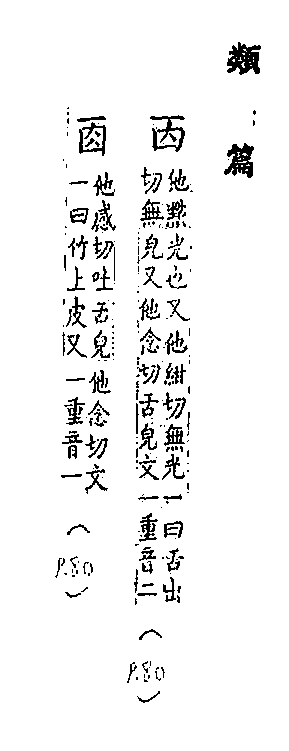 類篇
㐁
他點光也又他紺切無光一曰舌出
切無皃又他念切舌皃文一重音二
(P.80)
他感切吐舌皃他念切文
一曰竹上皮又一重音一
(P.80)